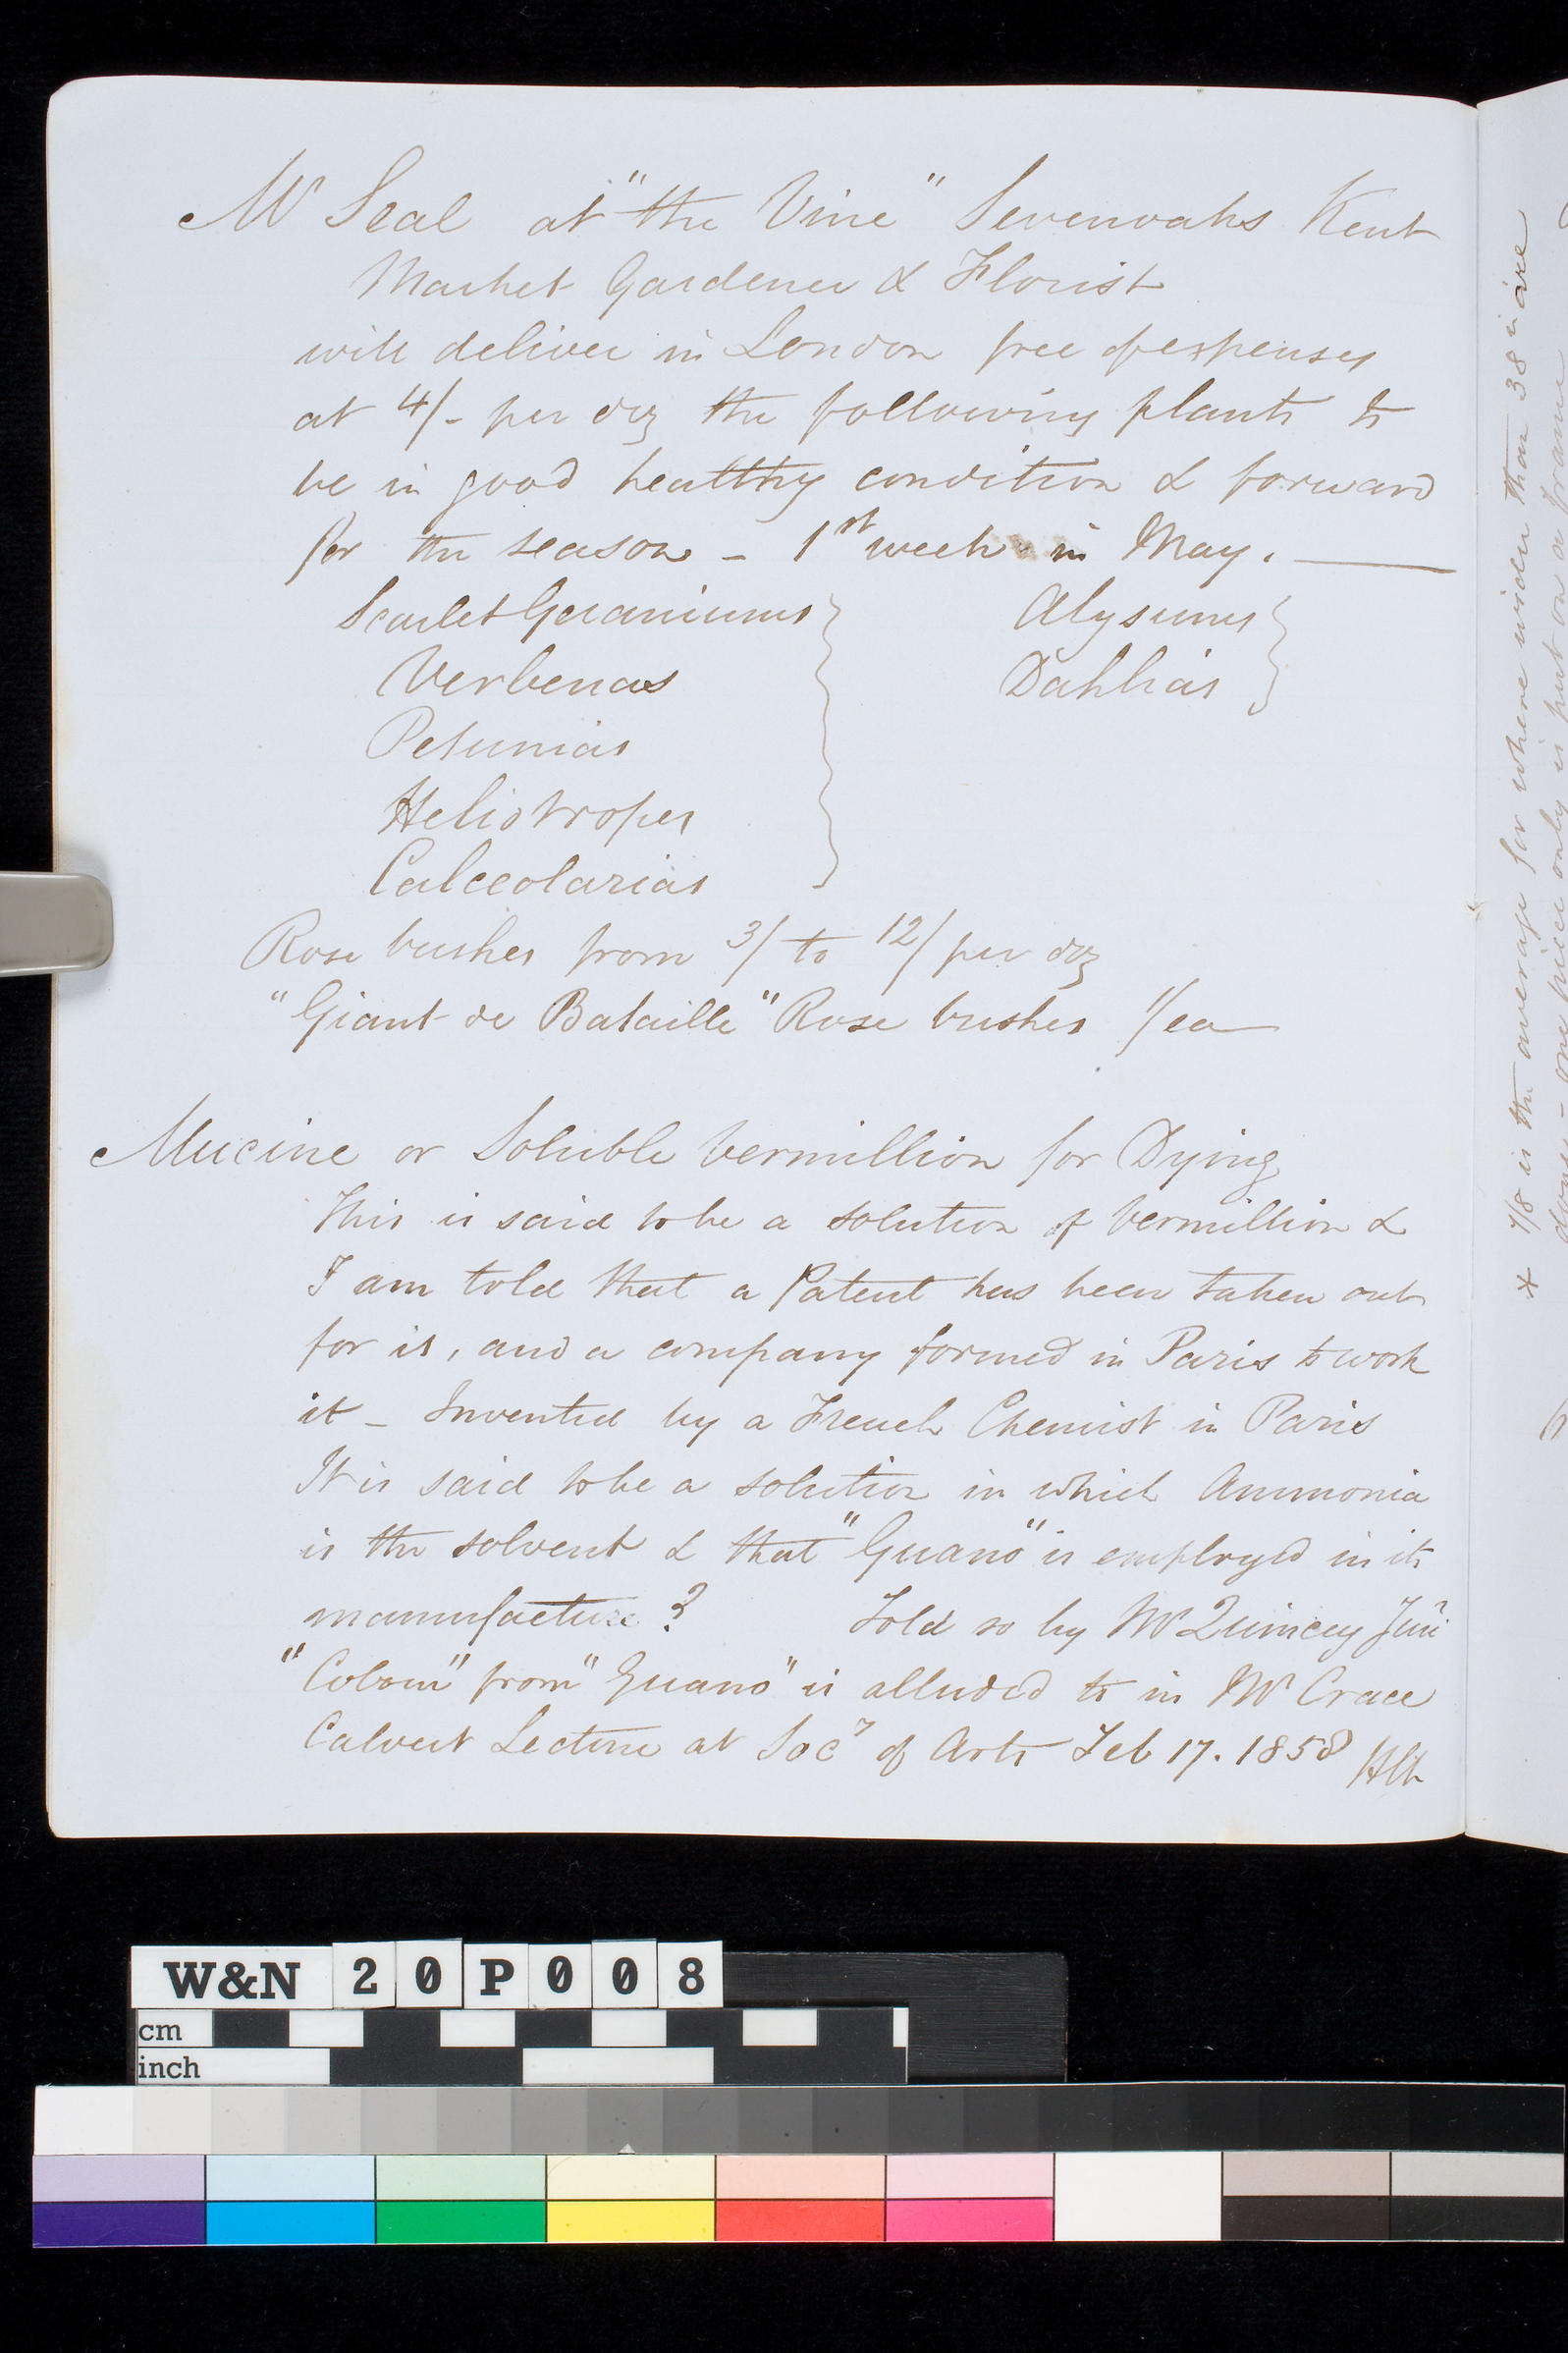 Mr Seal at "the Vine" Sevenoaks Kent
Market Gardener & Florist
will deliver in London free of expenses
at 4/- per doz the following plants to
be in good healthy condition & forward
for the season - 1st week in May.
Scarlet Geraniums } Alysums }
Verbenas Dahlias
Petunias
Heliotropes
Calceolarias
Rose bushes from 3/ to 12/ per doz
"Giant de Bataille" Rose bushes 1/ ea
Mucine or Soluble Vermillion for Dying
This is said to be a solution of Vermillion &
I am told that a Patent has been taken out
for it, and a company formed in Paris to work
it - Invented by a French Chemist in Paris
It is said to be a solution in which Ammonia
is the solvent & that "Guano" is employed in its
manufacture? Told so by Mr Quincey Junr
"Colour" from "Guano" is alluded to in Mr Crace
Calvert Lecture at Socy of Arts Feb 17. 1858
* 7/8 is the average for where wider than 38 in are
one piece only is put on a frame
W&N 20P008
cm
inch